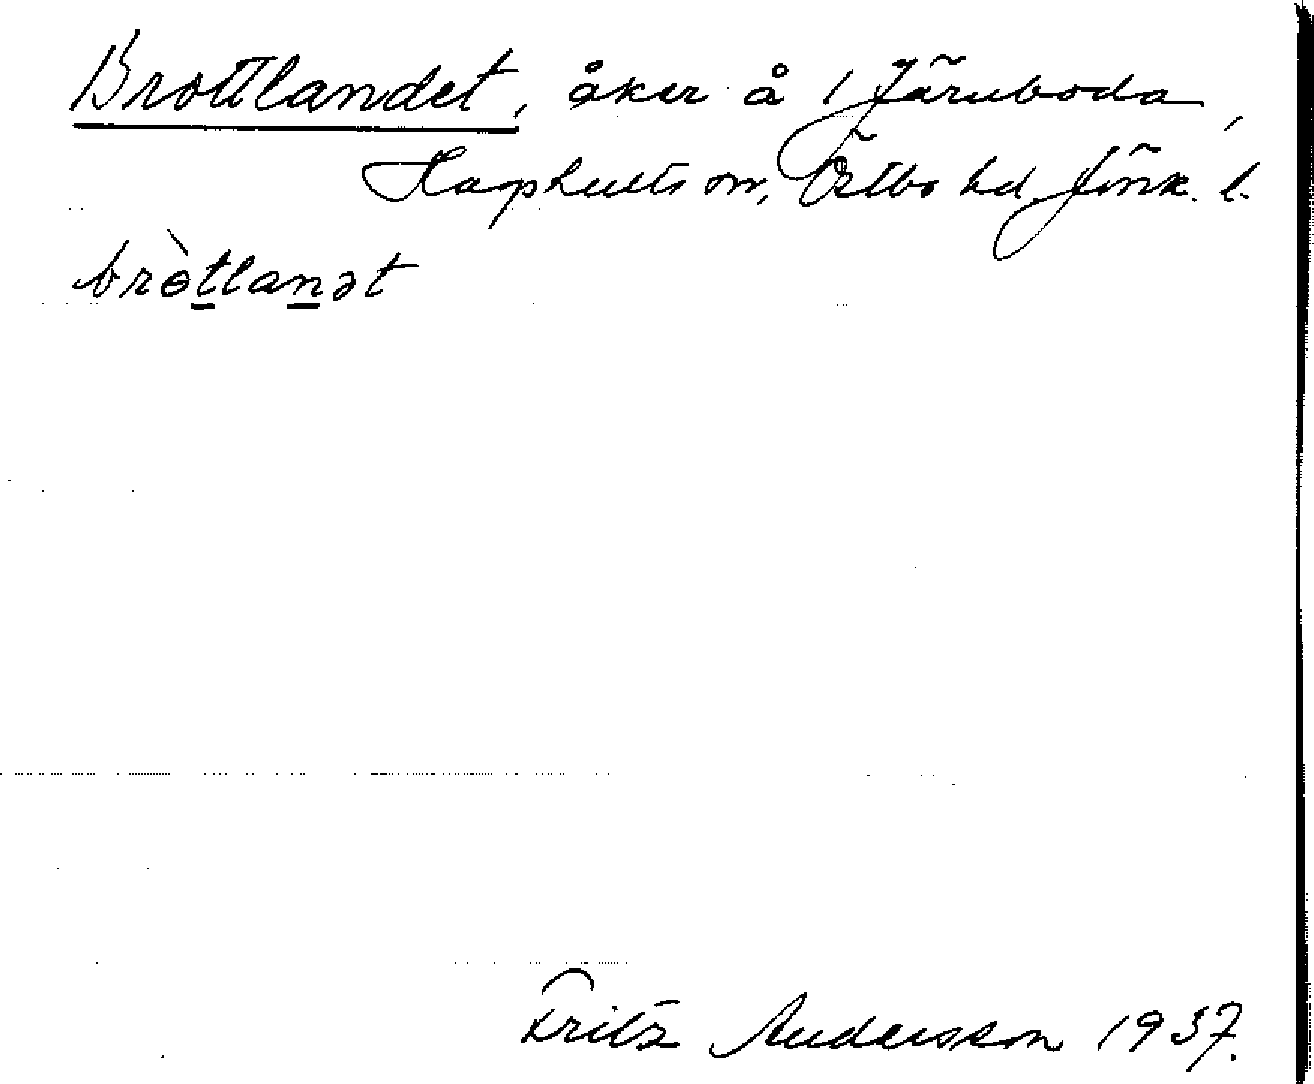 Brottlandet, åker å 1 Järuboda,
Haghults sn, Östbo hd, Jönk. l.
bròtlanət
Fritz Andersson 1937.